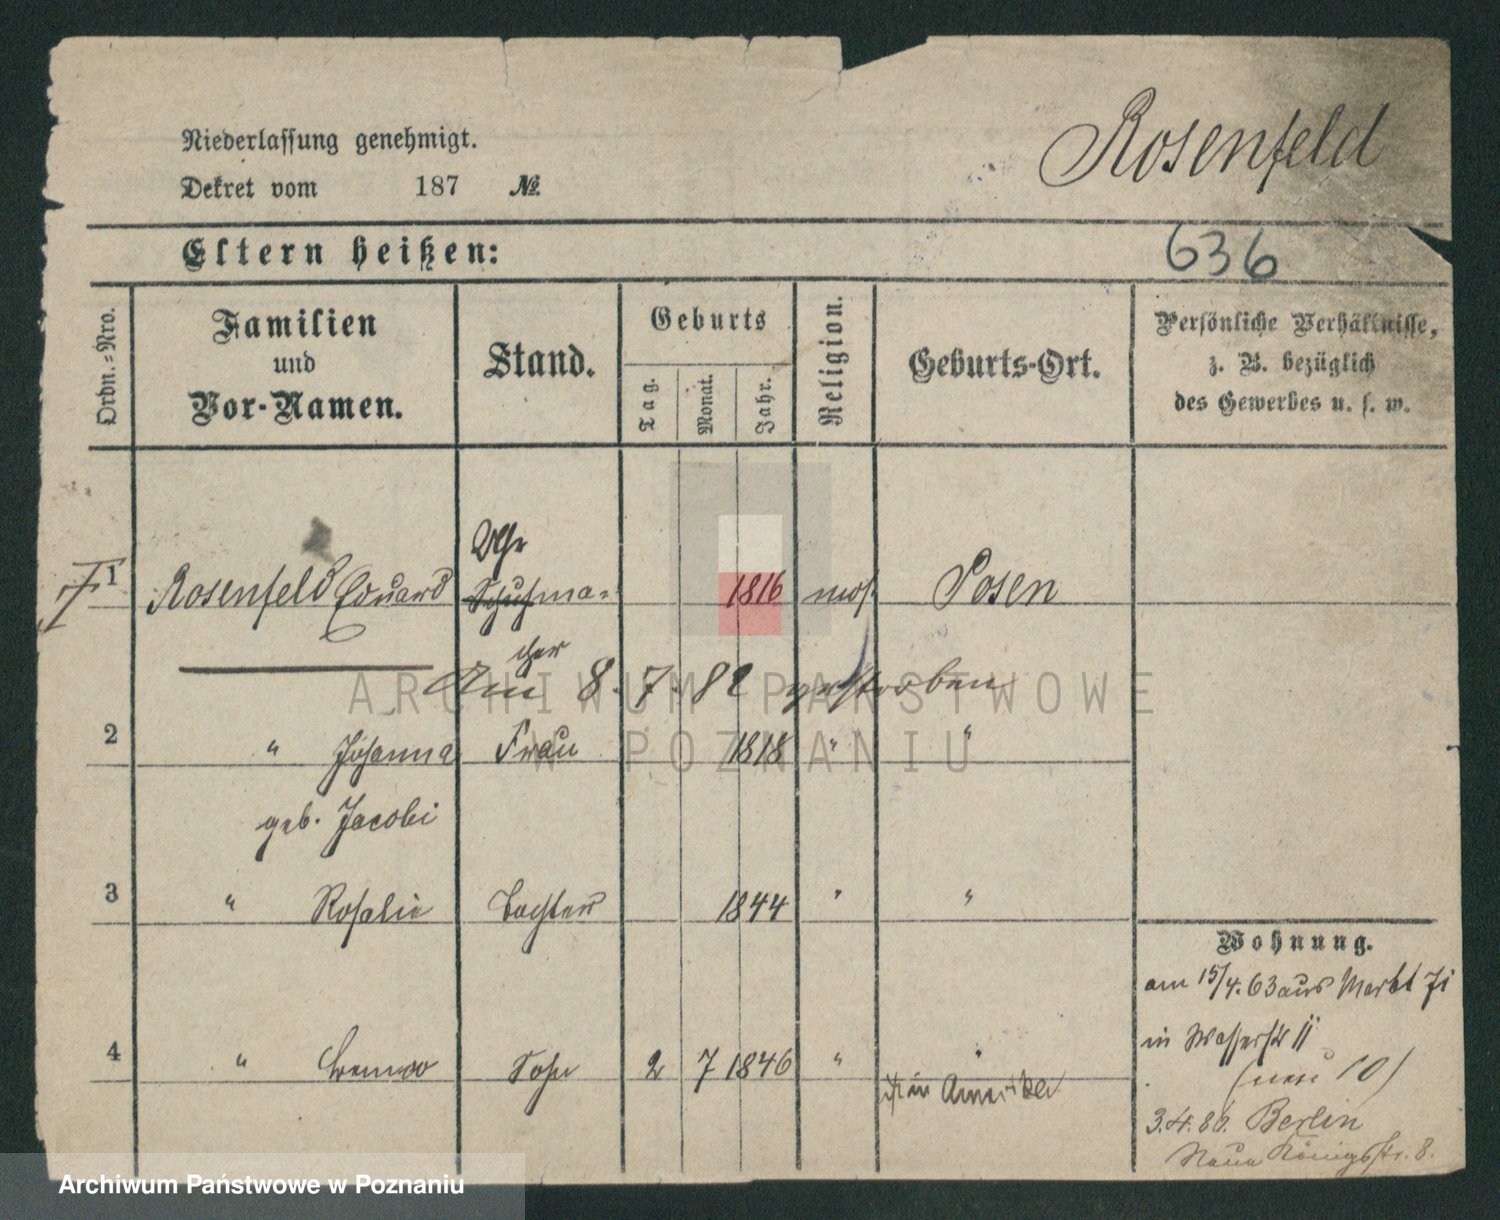 Rosenfeld
Niederlassung genehmigt.
Dekret vom 187 №
Eltern heißen:
636
Ordn.-Nro.
Familien
und
Vor-Namen.
Stand.
Geburts
Tag.
Monat.
Jahr.
Religion.
Geburts-Ort.
Persönliche Verhältnisse,
z. B. bezüglich
des Gewerbes u. s. w.
Uhr
1 Rosenfeld Eduard Schuhma= 1816 mos. Posen
cher
Am 8. 7. 82 gestorben
2 " Johanna Frau 1818 " "
geb. Jacobi
3 " Rosalie Tochter 1844 " "
4 " Sohn 2 7 1846 "
ist in Amerika
Wohnung.
am 15/4. 63 aus Markt 71
in Wasserstr 11
(neu 10)
3. 4. 86. Berlin
Neue Königstr. 8.
ARCHIWUM PAŃSTWOWE
W POZNANIU
Archiwum Państwowe w Poznaniu